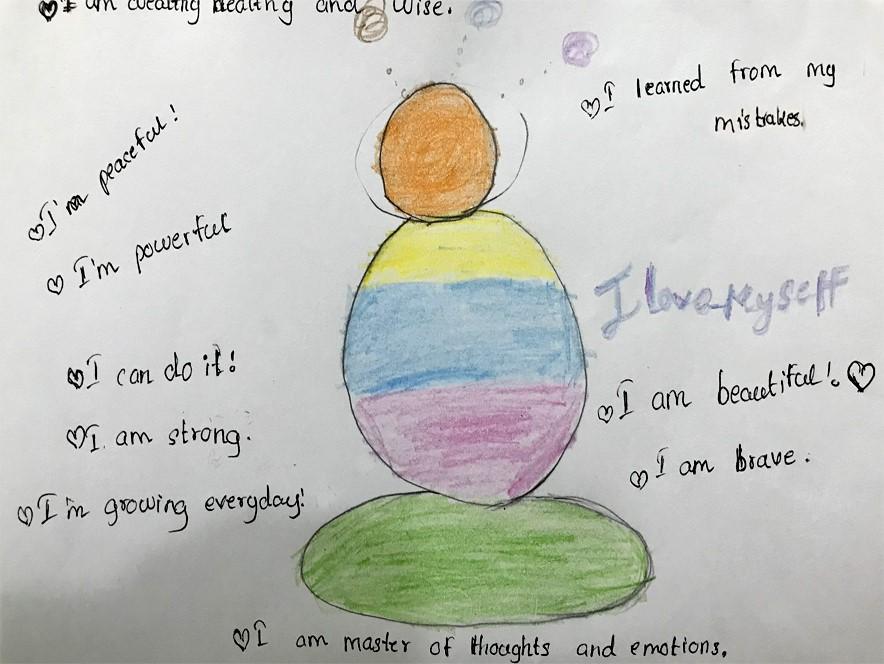 I am wealthy healthy and wise.
I learned from my
mistakes.
I'm peaceful!
I'm powerful
I love Myself
I can do it!
I am beautiful!
I am strong.
I am brave.
I'm growing everyday!
I am master of thoughts and emotions.